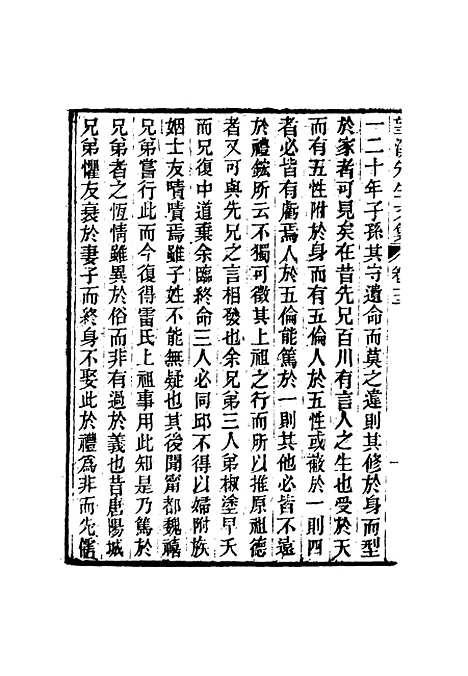 望溪先生文集 卷十三
一二十年子孫其守遺命而莫之違則其修於身而型
於家者可見矣在昔先兄百川有言人之生也受於天
而有五性附於身而有五倫人於五性或㪚於一則四
者必皆有虧焉人於五倫能篤於一則其他必皆不遠
於禮鋐所云不獨可徵其上祖之行而所以推原祖德
者又可與先兄之言相發也余兄弟三人弟椒塗早夭
而兄復中道棄余臨終命三人必同邱不得以婦附族
姻士友嘖嘖焉雖子姓不能無疑也其後聞甯都魏禧
兄弟嘗行此而今復得雷氏上祖事用此知是乃篤於
兄弟者之恆情雖異於俗而非有過於義也昔唐陽城
兄弟懼友衰於妻子而終身不娶此於禮為非而先儒